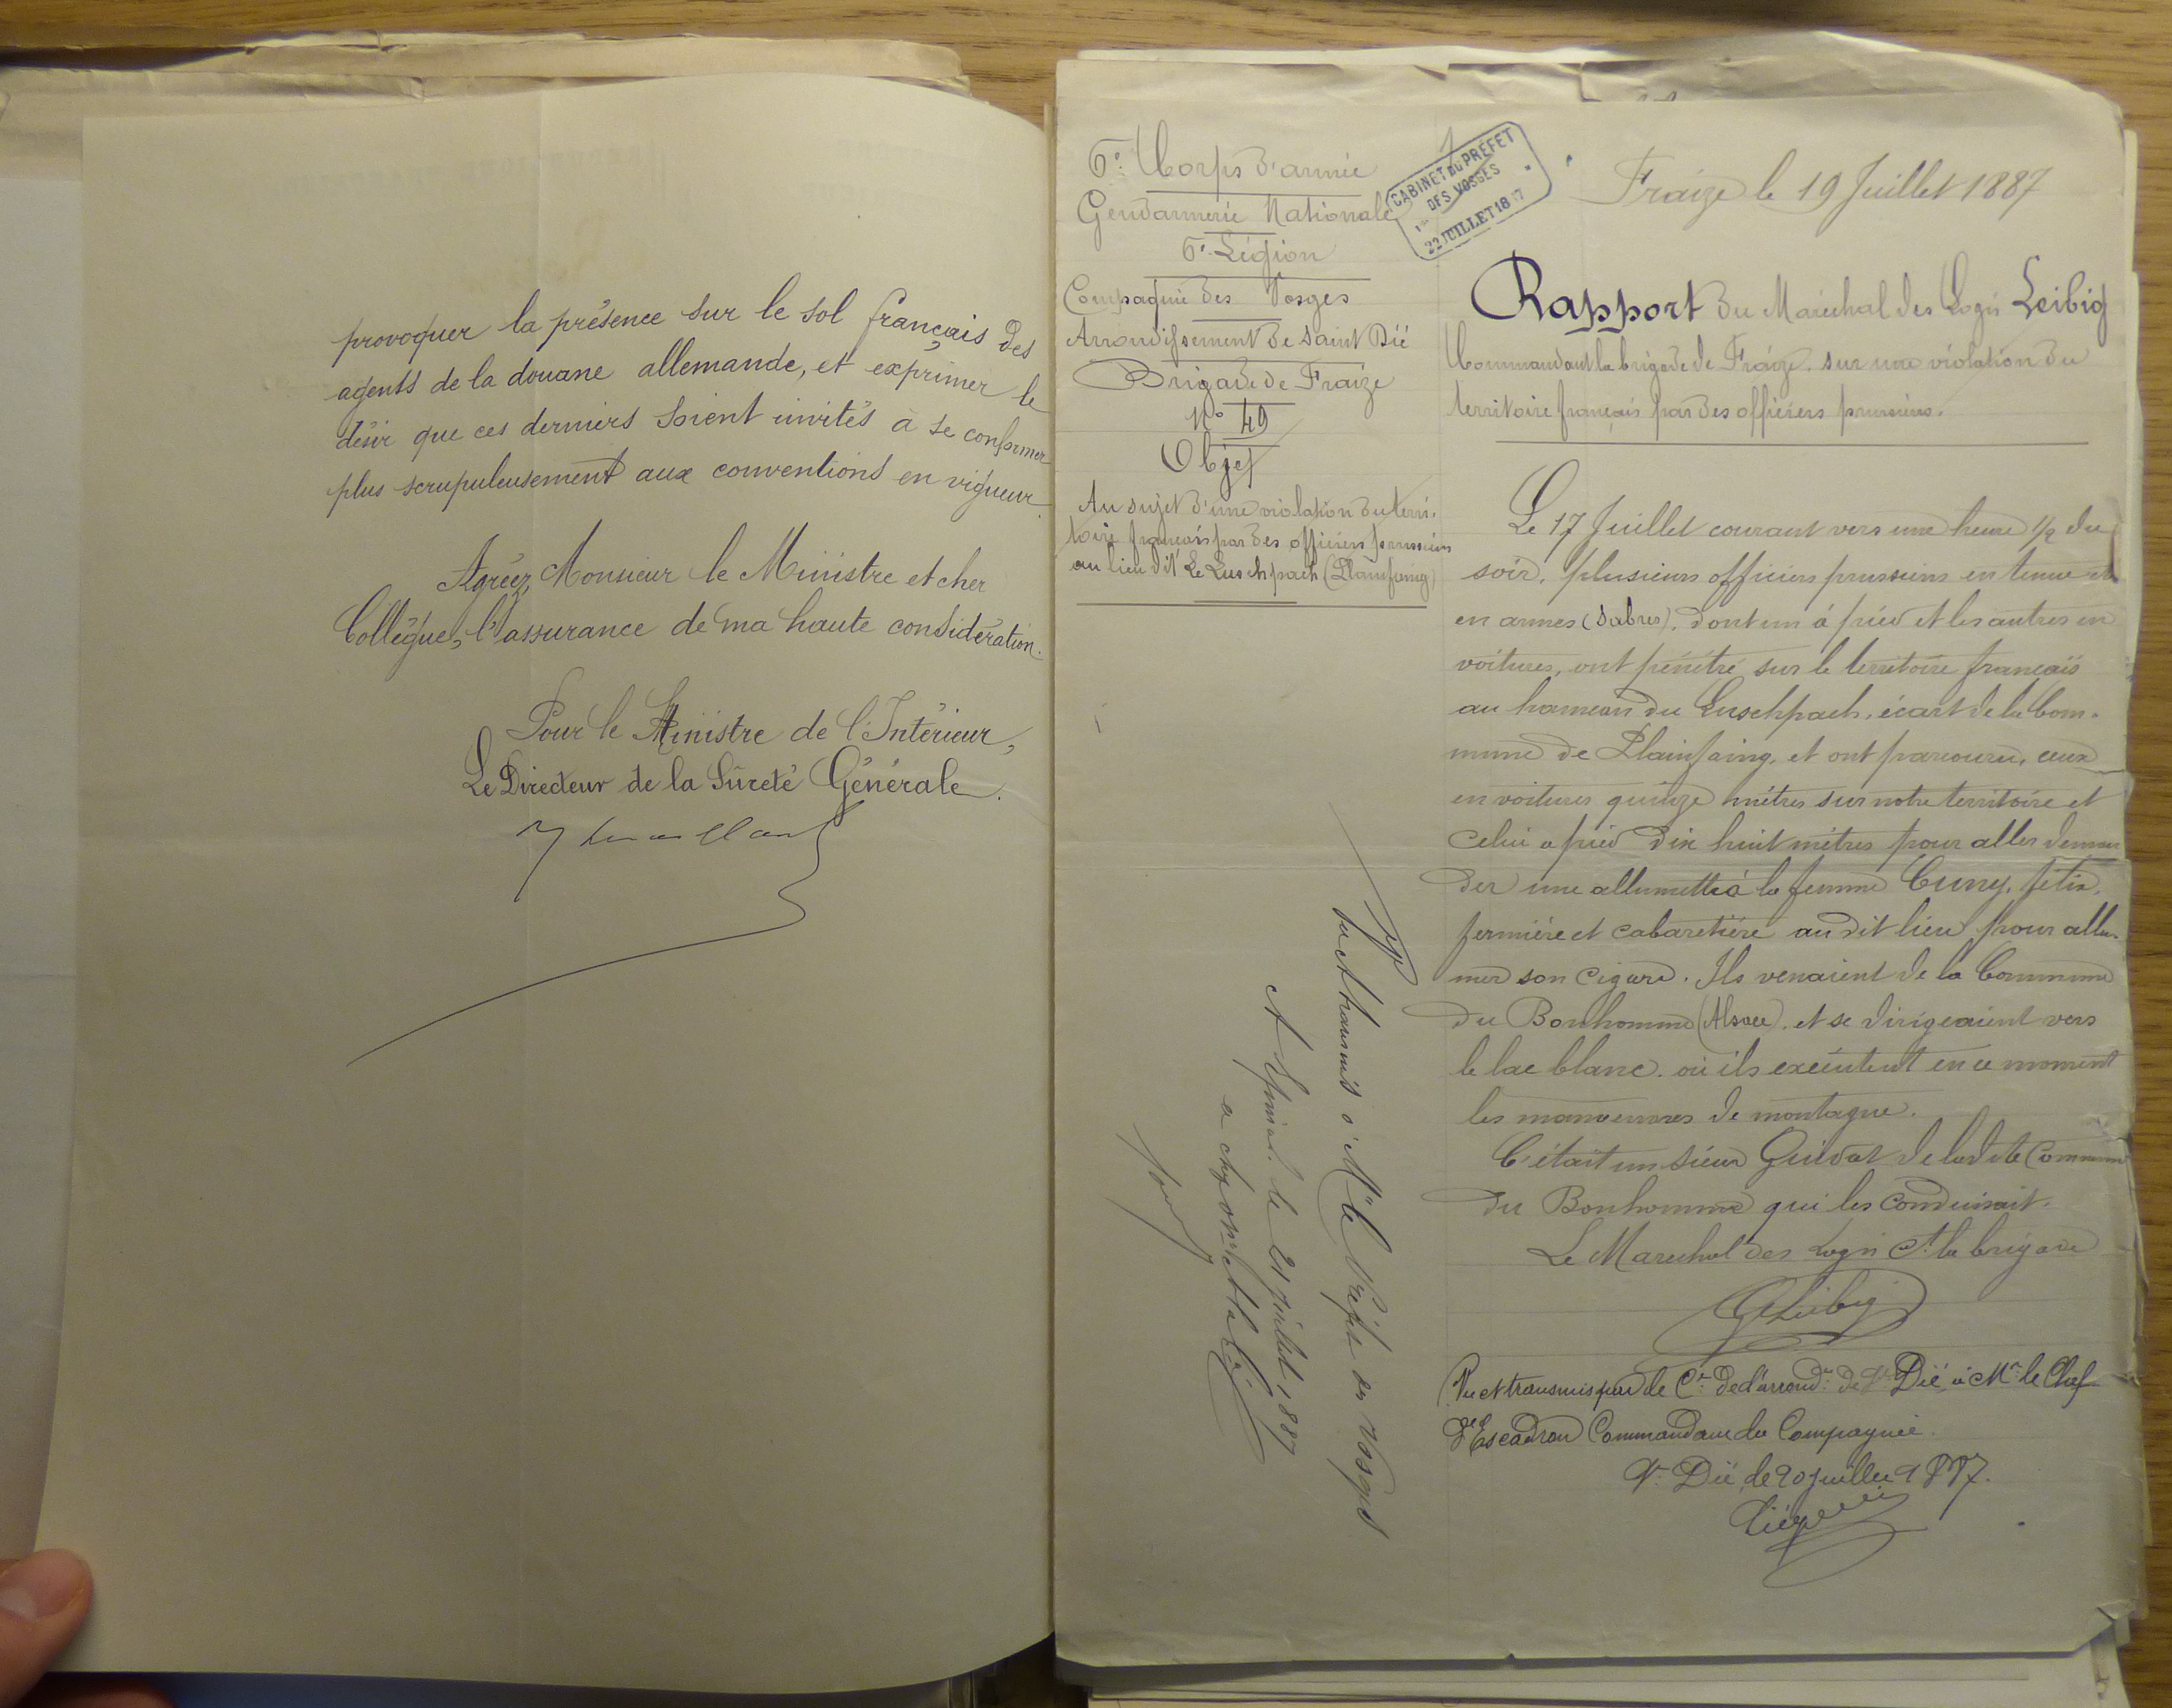 provoquer la présence sur le sol français des
agents de la douane allemande, et exprimer le
désir que ces derniers soient invités à se conformer
plus scrupuleusement aux conventions en vigueur.
Agréez, Monsieur le Ministre et cher
Collègue, l'assurance de ma haute considération.
Pour le Ministre de l'Intérieur,
Le Directeur de la Sûreté Générale.
6e Corps d'armée
Gendarmerie Nationale
6e Légion
Compagnie des Vosges
Arrondissement de Saint Dié
Brigade de Fraize
No 49
Objet
Au sujet d'une violation du terri-
toire français par des officiers prussiens
au lieu dit Le Luschpach (Plainfaing)
CABINET DU PRÉFET
DES VOSGES
22 JUILLET 18 7
Fraize le 19 Juillet 1887
Rapport du Maréchal des Logis Leibig
Commandant la brigade de Fraize, sur une violation du
territoire français par des officiers prussiens.
Le 17 Juillet courant vers une heure 1/2 du
soir, plusieurs officiers prussiens en tenue et
en armes (sabres), dont un à pied et les autres en
voitures, ont pénétré sur le territoire français
au hameau du Luschpach, écart de la Com-
mune de Plainfaing, et ont parcouru, ceux
en voitures quinze mètres sur notre territoire et
celui à pied dix huit mètres pour aller deman
der une allumette à la femme Cuny, félix,
fermière et cabaretière au dit lieu pour allu-
mer son cigare. Ils venaient de la Commune
du Bonhomme (Alsace), et se dirigeaient vers
le lac blanc. où ils exécutent en ce moment
les manoeuvres de montagne.
C'était un sieur Guidat de la dite Commune
du Bonhomme qui les conduisait.
Le Marechal des Logis Ct la brigade
GLeibig
Vu et transmis par le Cne de l'arrondt de St Dié à Mr le Chef
d'Escadron Commandant la Compagnie.
St Dié, le 20 juillet 1887.
Vu et transmis à Mr le Préfet des Vosges
A Epinal le 21 juillet 1887